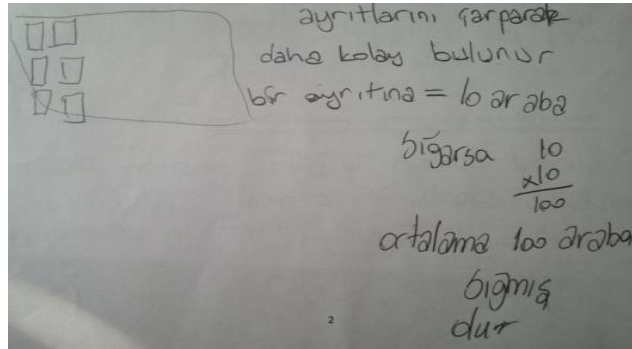 ayrıtlarını çarparak
daha kolay bulunur
bir ayrıtına = 10 araba
sığarsa 10
x10
100
ortalama 100 araba
sığmış
dur
2